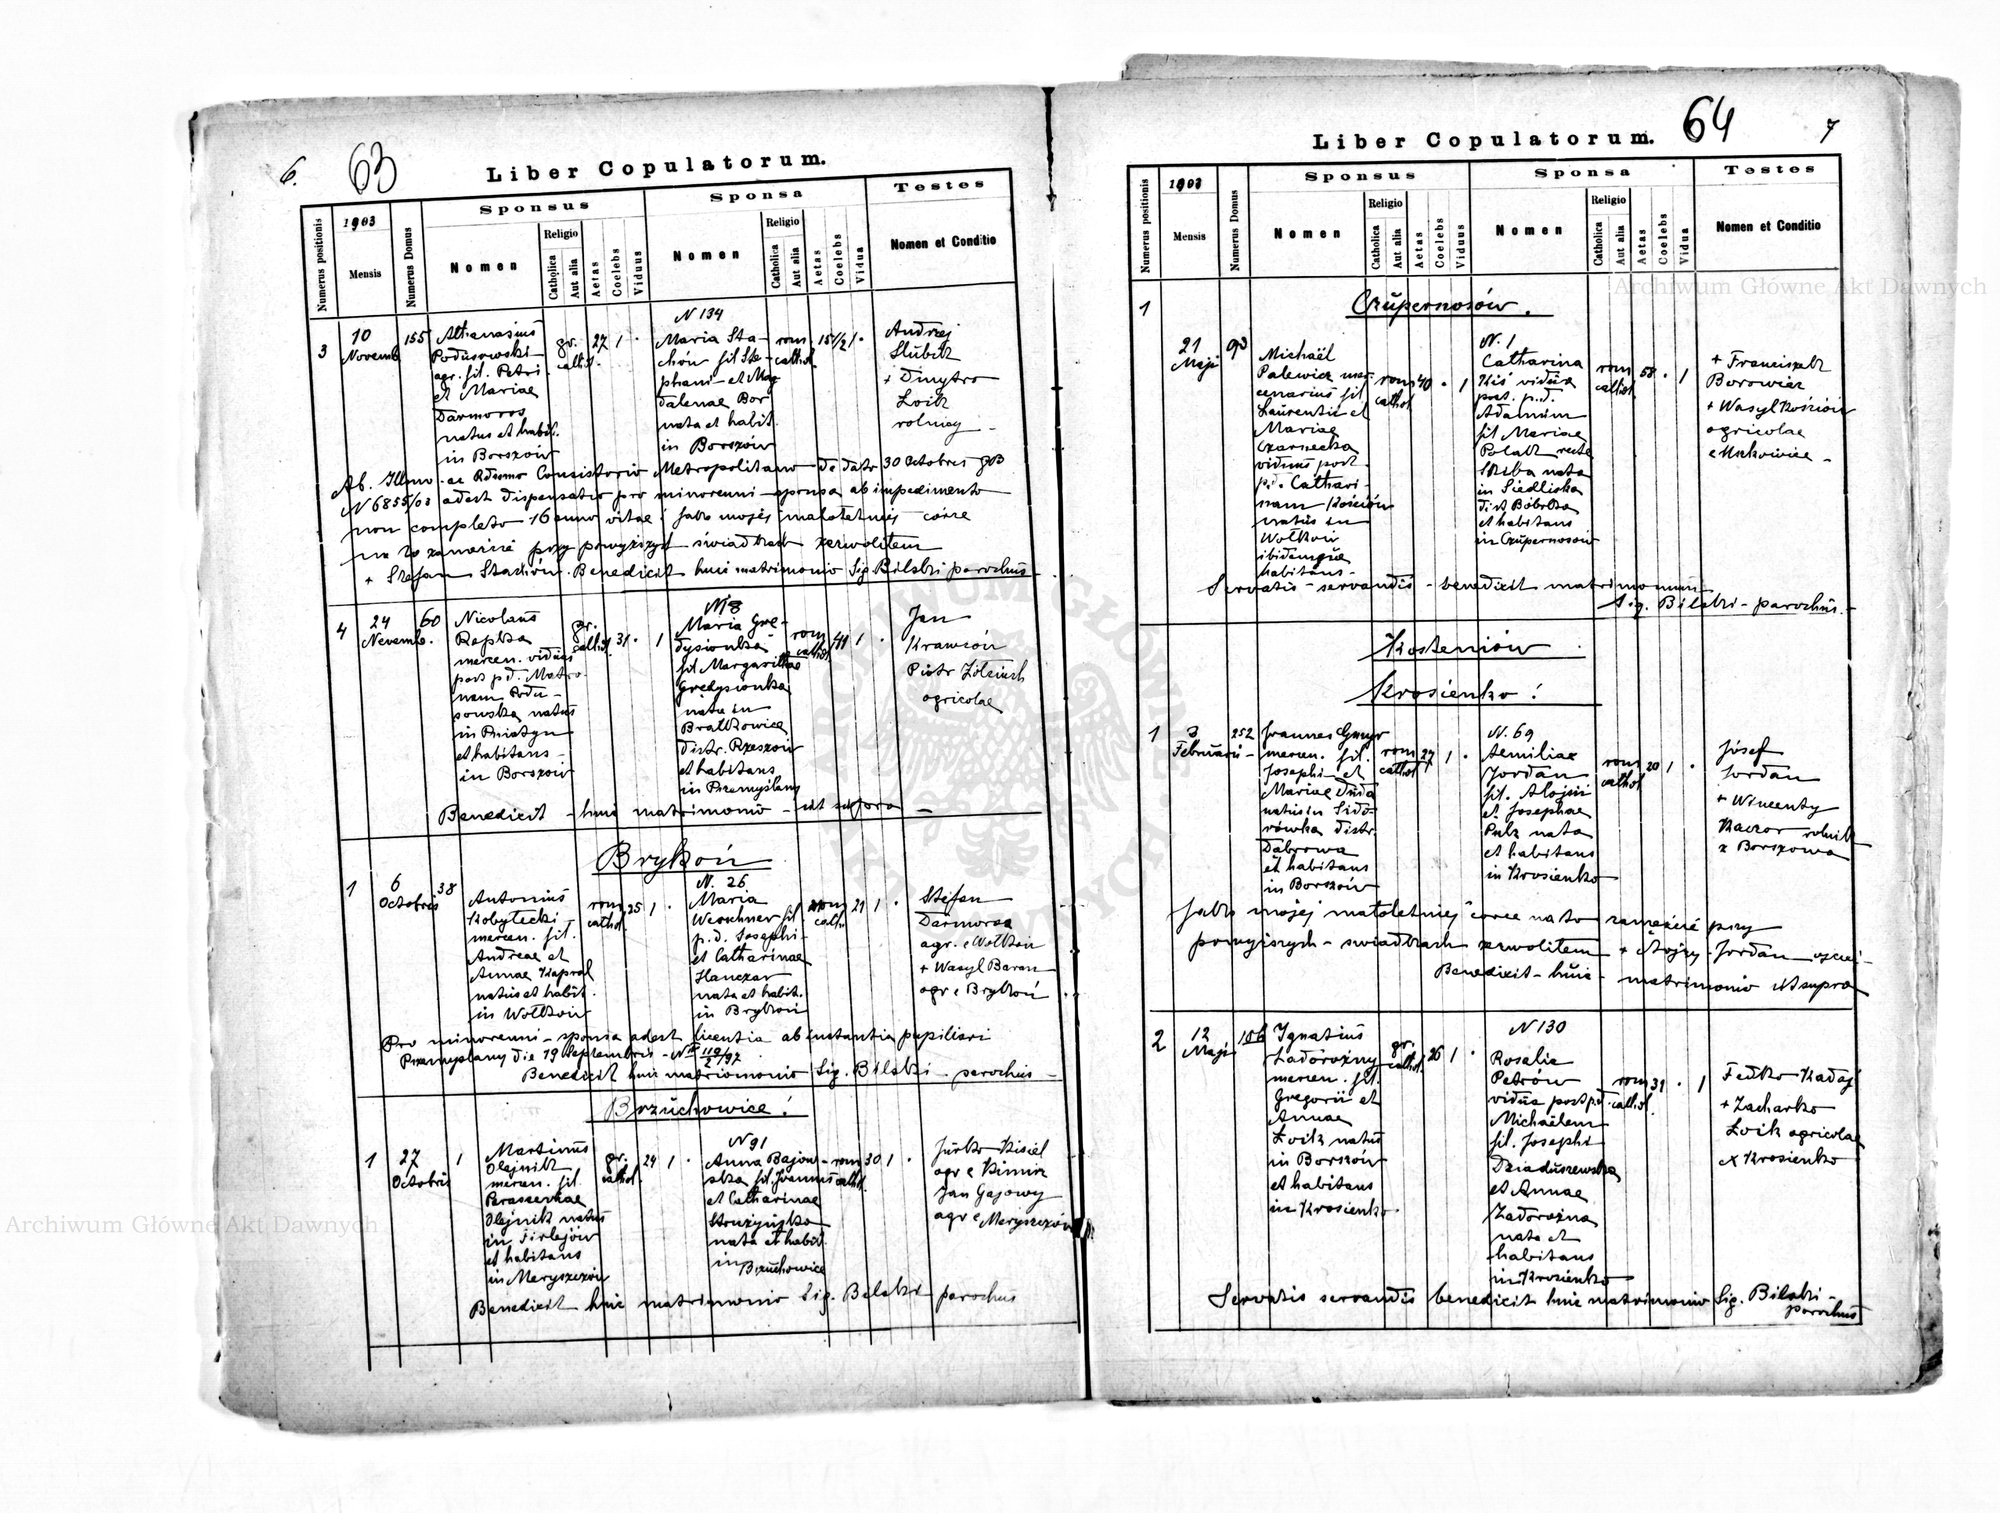 6.
63
Liber Copulatorum.
Numerus positionis
1903
Mensis
Numerus Domus
Sponsus
Sponsa
Testes
Nomen
Religio
Catholica
Aut alia
Aetas
Coelebs
Viduus
Nomen
Religio
Catholica
Aut alia
Aetas
Coelebs
Vidua
Nomen et Conditio
3
10
Novemb
155
Athanasius
Podusowski
agr. fil. Petri
et Mariae
Darmoros
natus et habit.
in Borszów
gr.
cathol.
27
1
N 134
Maria Sta-
chów fil Ste-
phani et Mag
dalenae Bor
nata et habit.
in Borszów
rom
cathol.
15 1/2
1
Andrzej
+ Dmytro
Łoik
rolnicy
Ab. Illmo ac Rdssmo Consistorio Metropolitano de dato 30 Octobris 903
N 6855/03 adest dispensatio pro minorenni sponsa ab impedimento
non completo 16 anno vitae! Jako mojej małoletniej córce
na to zamęście przy powyższych świadkach zezwoliłem
+ Stefan Stachów. Benedicit huic matrimonio Sig. Bilski parochus
4
24
Novemb.
60
Nicolaus
Rapka
mercen. viduus
post p.d. Matro-
nam Podu-
sowska natus
in
et habitans
in Borszów
gr.
cathol.
31
1
N 8
Maria Gre-
dysionka
fil Margarithae
Gredysionka
nata in
Bratkowice
distr. Rzeszów
et habitans
in Przemyślany
rom
cathol
41
1
Jan
Krawców
Piotr
agricolae
Benedicit huic matrimonio ut supra
Brykoń
1
6
Octobris
38
Antonius
Kobyłecki
mercen. fil.
Andreae et
Annae Kapral
natus et habit.
in Wołków
rom
cathol.
25
1
N. 26
Maria
fil
p.d. Josephi
et Catharinae
Hanczar
nata et habit.
in Brykoń
rom
cathol
21
1
Stefan
Darmoros
agr. e Wołków
+ Wasyl Baran
agr e Brykoń
Pro minorenni sponsa adest licentia ab instantia pupillari
Przemyślany die 19 Septembris
Benedicit huic matrimonio Sig. Bilski parochus
Brzuchowice!
1
27
Octobris
1
Martinus
Olejnik
mercen. fil.
Parascevkae
Olejnik natus
in Firlejów
et habitans
in Meryszczów
gr.
cathol.
24
1
N 91
Anna Bajow-
ska fil. Joannis
et Catharinae
nata et habit.
in Brzuchowice
rom
cathol.
30
1
Jurko Kisiel
agr e Kimirz
Jan Gajowy
agr e Meryszczów
Benedicit huic matrimonio Sig. Bilski parochus
64
7
Liber Copulatorum.
Numerus positionis
1903
Mensis
Numerus Domus
Sponsus
Sponsa
Testes
Nomen
Religio
Catholica
Aut alia
Aetas
Coelebs
Viduus
Nomen
Religio
Catholica
Aut alia
Aetas
Coelebs
Vidua
Nomen et Conditio
Czupernosów.
1
21
Maji
93
Michaël
Palewicz mer-
cenarius fil.
Laurentii et
Mariae
Czarnecka
viduus post
p.d. Cathari-
nam Kościów
natus in
Wołków
ibidemque
habitans
rom
cathol
40
1
N. 1
Catharina
Kiś vidua
post. p.d.
Adamum
fil Mariae
Polak recte
Skiba nata
in Siedliska
dist Bóbrka
et habitans
in Czupernosów
rom
cathol
58
1
+ Franciszek
Borowicz
+ Wasyl Kościów
agricolae
Servatis servandis benedixit matrimonium
Sig. Bilski parochus.
Kosteniów
Krosienko!
1
3
Februarii
252
Joannes Gmyr
mercen. fil.
Josephi et
Mariae Duda
natus in Sido-
rówka distr.
Dąbrowa
et habitans
in Borszów
rom
cathol
27
1
N. 69
Aemiliae
Jordan
fil. Alojsii
et Josephae
Pulz nata
et habitans
in Krosienko
rom
cathol
20
1
Józef
Jordan
+ Wincenty
Kaczor rolnik
z Borszowa
Jako mojej małoletniej córce na to zamęście przy
powyższych świadkach zezwoliłem + Alojzy Jordan ojciec
Benedixit huic matrimonio ut supra
2
12
Maji
106
Ignatius
Zadorożny
mercen. fil.
Gregorii et
Annae
Łoik natus
in Borszów
et habitans
in Krosienko.
gr.
cathol.
26
1
N 130
Rosalia
Petrów
vidua post p.d.
Michaëlem
fil. Josephi
Dziaduszewska
et Annae
Zadorożna
nata et
habitans
in Krosienko
rom
cathol.
31
1
Fedko Kadaj
+ Zacharko
Łoik agricolae
ex Krosienko
Servatis servandis benedixit huic matrimonio Sig. Bilski
parochus
Archiwum Główne Akt Dawnych
Archiwum Główne Akt Dawnych
ARCHIWUM GŁÓWNE AKT DAWNYCH